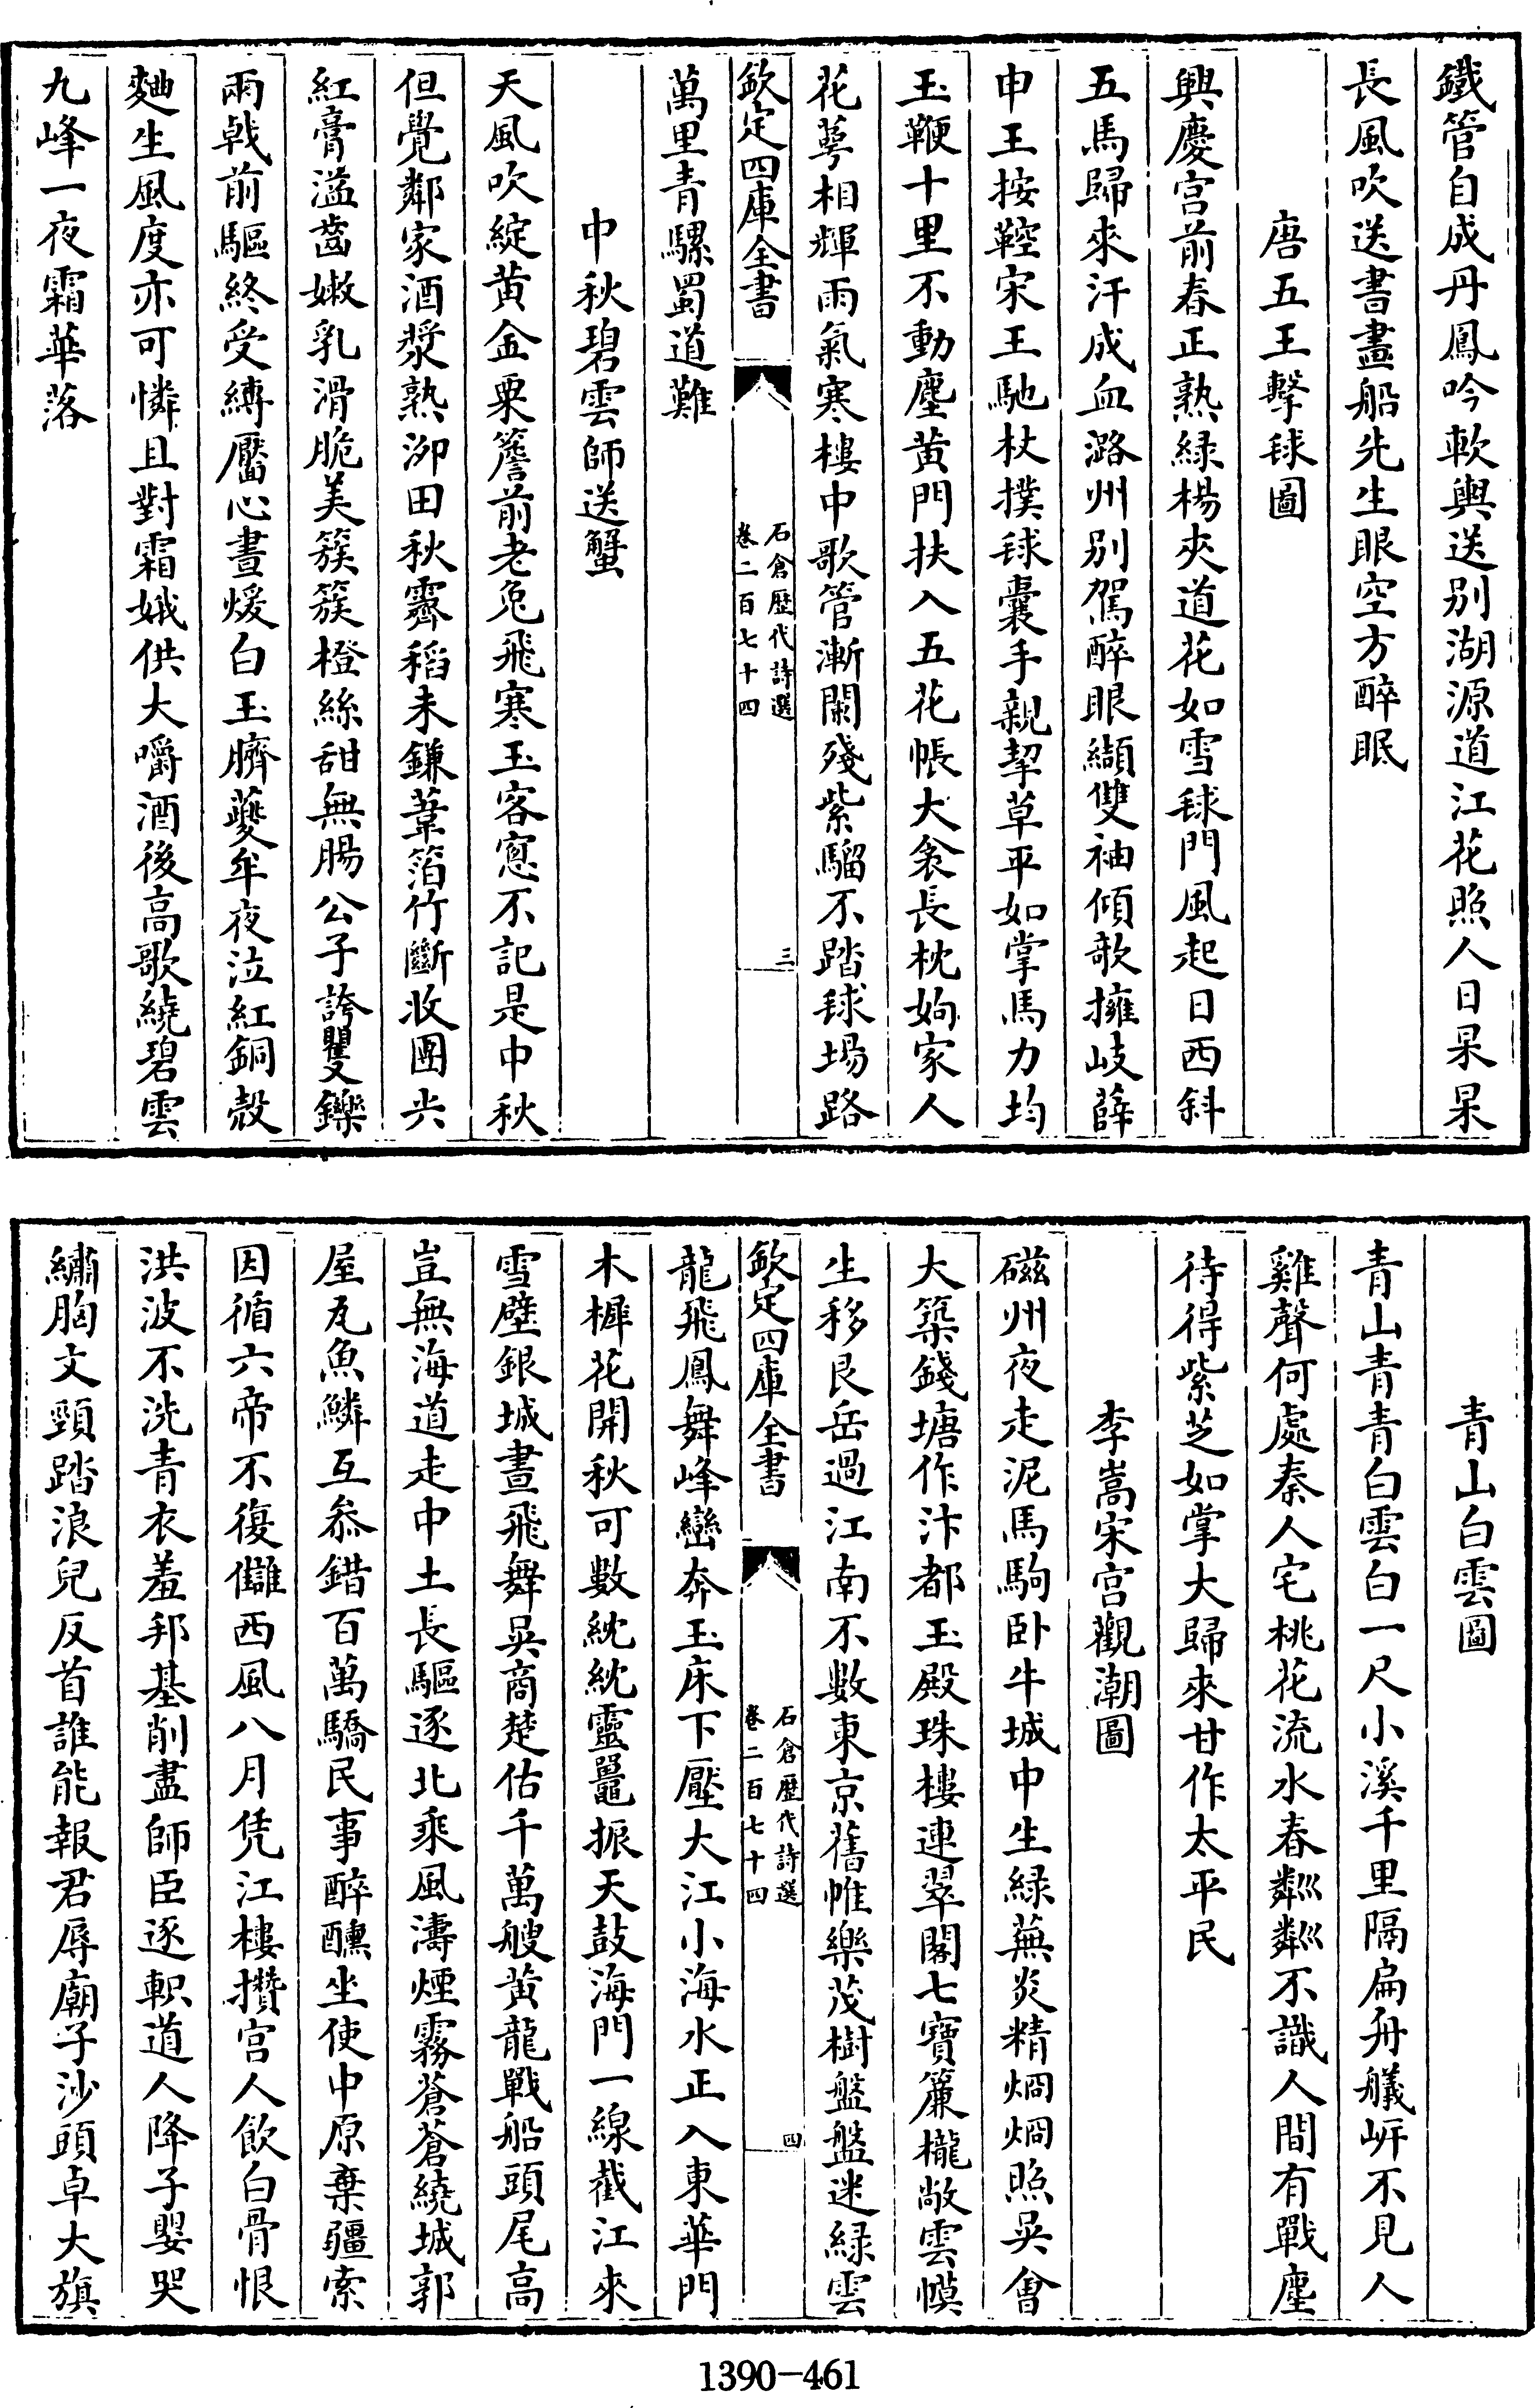 鐵管自成丹鳳吟軟輿送别湖源道江花照人日杲杲
長風吹送書畫船先生眼空方醉眠
唐五王擊毬圖
興慶宫前春正熟緑楊夾道花如雪毬門風起日西斜
五馬歸來汗成血潞州别駕醉眼纈雙袖傾欹擁岐薛
申王按鞚宋王馳杖撲毬囊手親挈草平如掌馬力均
玉鞭十里不動塵黄門扶入五花帳大衾長枕姁家人
花萼相輝雨氣寒樓中歌管漸闌殘紫騮不踏毬場路
欽定四庫全書
石倉歷代詩選
卷二百七十四
三
萬里青騾蜀道難
中秋碧雲師送蟹
天風吹綻黄金粟簷前老兔飛寒玉客窓不記是中秋
但覺鄰家酒漿熟泖田秋霽稻未鎌葦箔竹斷收團尖
紅膏溢齒嫩乳滑脆美簇簇橙絲甜無腸公子誇矍鑠
兩戟前驅終受縳靨心晝煖白玉臍虁牟夜泣紅銅殻
麯生風度亦可憐且對霜娥供大嚼酒後高歌繞碧雲
九峰一夜霜華落
青山白雲圖
青山青青白雲白一尺小溪千里隔扁舟艤岍不見人
雞聲何處秦人宅桃花流水春粼粼不識人間有戰塵
待得紫芝如掌大歸來甘作太平民
李嵩宋宫觀潮圖
磁州夜走泥馬駒卧牛城中生緑蕪炎精炯炯照吳會
大築錢塘作汴都玉殿珠樓連翠閣七寶簾櫳敞雲幙
生移艮岳過江南不數東京舊帷樂茂樹盤盤迷緑雲
欽定四庫全書
石倉歷代詩選
卷二百七十四
四
龍飛鳳舞峰巒奔玉床下壓大江小海水正入東華門
木樨花開秋可數紞紞靈鼉振天鼓海門一線截江來
雪壁銀城晝飛舞吳商楚估千萬艘黄龍戰船頭尾高
豈無海道走中土長驅逐北乘風濤煙霧蒼蒼繞城郭
屋瓦魚鱗互叅錯百萬驕民事醉醺坐使中原棄疆索
因循六帝不復讎西風八月凭江樓攢宫人飲白骨恨
洪波不洗青衣羞邦基削盡師臣逐軹道人降子嬰哭
繡胸文頸踏浪兒反首誰能報君辱廟子沙頭卓大旗
1390-461